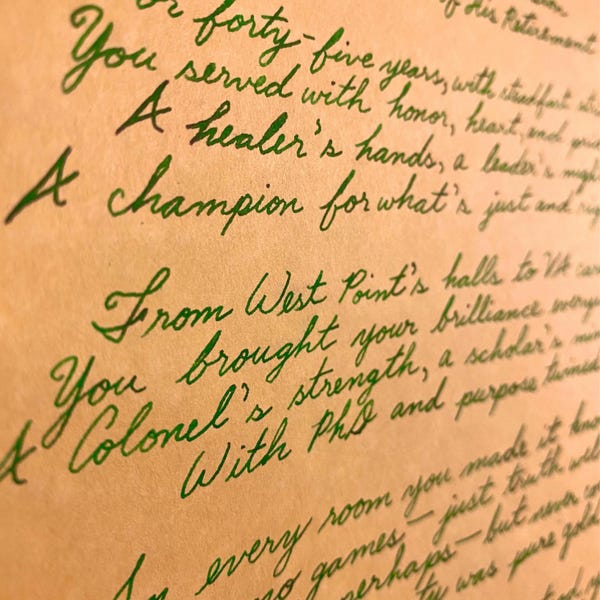 of His Retirement
For forty-five years, with steadfast
You served with honor, heart, and
A healer's hands, a leader's
A champion for what's just and
From West Point's halls to VA
You brought your brilliance
A Colonel's strength, a scholar's
With PhD and purpose twined
In every room you made it
no games — just truth
perhaps — but never
was pure gold